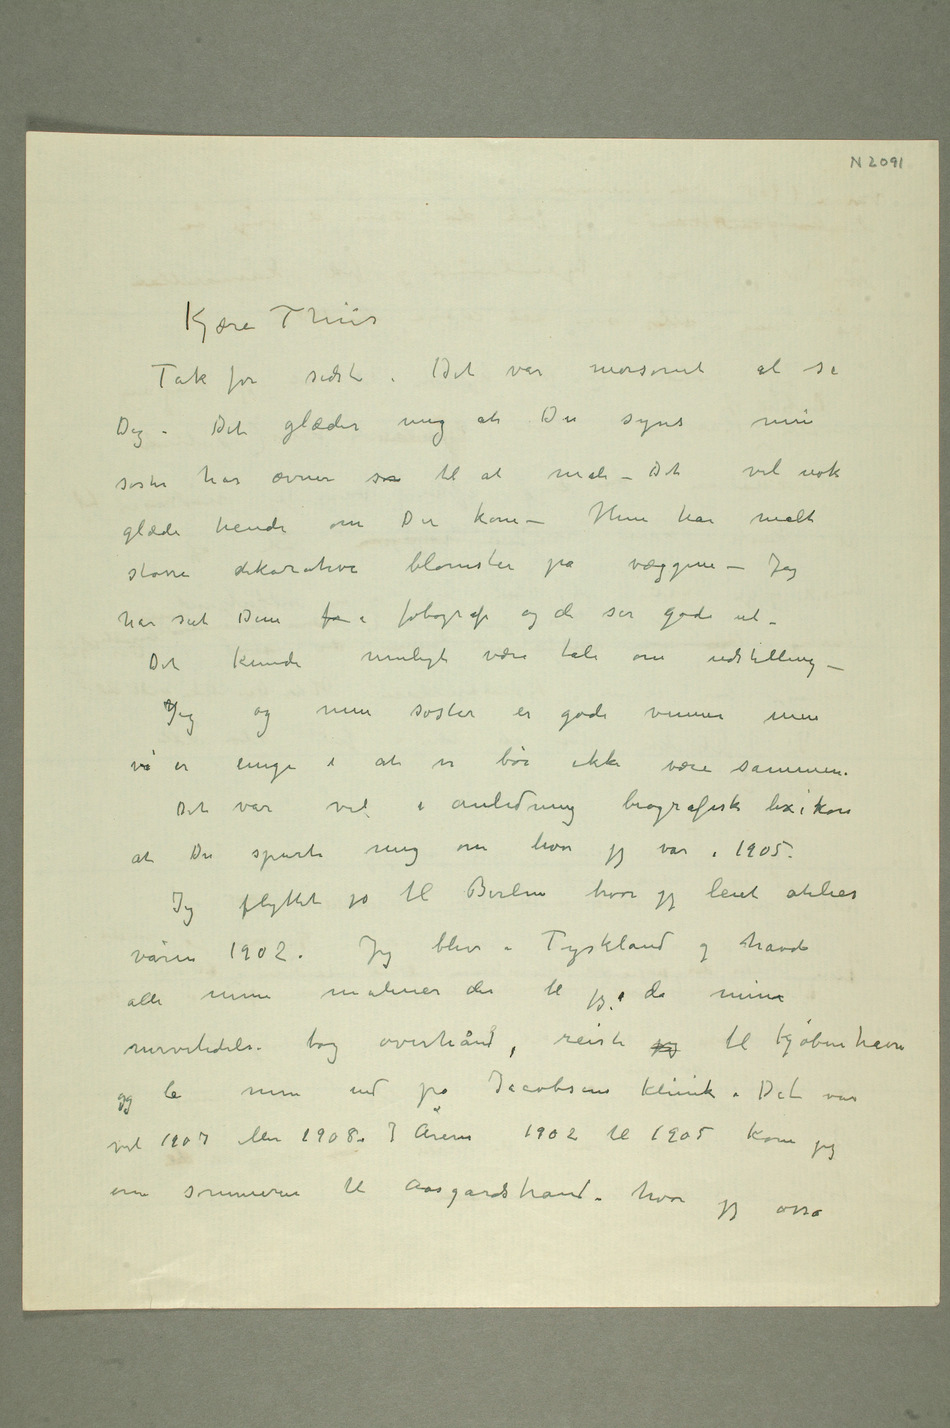 N 2091
Kjære Thiis
Tak for sidst. Det var morsomt at se
Dig – Det glæder mig at Du synes min
søster har evner til at male – Det vil nok
glæde hende om Du kom – Hun har malt
større dekorative blomster på væggene – Jeg
har set dem i fotografi og de ser gode ut –
Det kunde muligt være tale om udstilling –
Jeg og min søster er gode venner men
vi er enige i at vi bør ikke være sammen.
Det var vel i anledning biografisk lexikon
at Du spurte mig om hvor jeg var i 1905.
Jeg flyttet jo til Berlin hvor jeg leiet atelier
våren 1902. Jeg blev i Tyskland og havde
alle mine malerier der til jeg, da mine
nervelidelse tog overhånd, reiste jeg til Kjøbenhavn
og la mig ind på Jacobsens klinik. Det var
vel 1907 eller 1908. I Årene 1902 til 1905 kom jeg
om sommeren til Aasgårdstrand – hvor jeg også